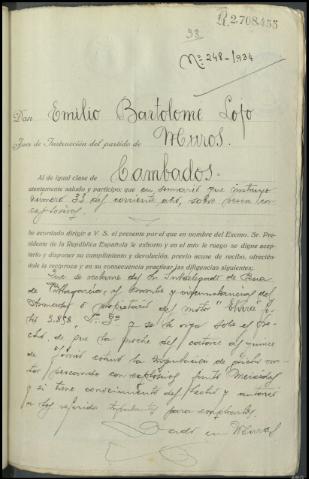 R. 2.708.455
33
Nº 248-1934
Don Emilio Bartolome Lojo
Juez de Instrucción del partido de Muros.
Al de igual clase de Cambados.
atentamente saludo y participo: que en sumario que instruyo
número 33 del corriente año, sobre pesca con
explosivos
he acordado dirigir a V. S. el presente por el que en nombre del Excmo. Sr. Pre-
sidente de la República Española le exhorto y en el mío le ruego se digne acep-
tarlo y disponer su cumplimiento y devolución, previo acuse de recibo, ofreciéndo-
le la recíproca y en su consecuencia practicar las diligencias siguientes:
Que se reclame del Sr. Subdelegado de Pesca
de Villagarcía, el nombre y circunstancias del
Armador o propietario del motor
3.858 y se le oiga sobre el he-
cho, de que la noche del catorce al quince
de
pescando con explosivos
y si tiene conocimiento del hecho y autores
para
Dado en Muros